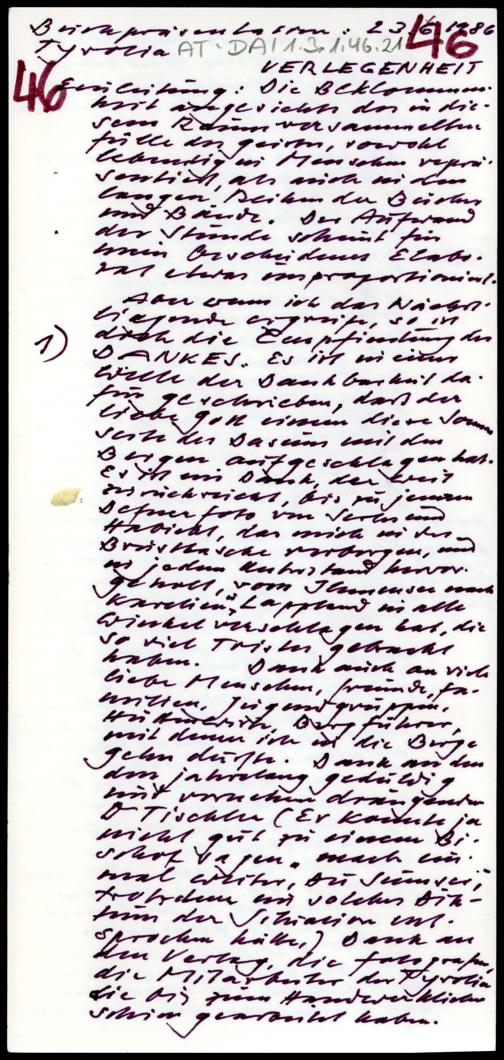 Buchpräsentation: 23.6.1986
Tyrolia AT-DA/1.3.1.46.21 46
VERLEGENHEIT
46 Einleitung: Die Beklommen-
heit angesichts der in die-
sem Raum versammelten
Fülle des Geistes, sowohl
lebendig in Menschen reprä-
sentiert, als auch in den
langen Reihen der Bücher
und Bände. Der Aufwand
der Stunde scheint für
mein bescheidenes Elabo-
rat etwas unproportioniert.
Aber wenn ich das Nächst-
liegende ergreife, so ist
1) doch die Empfindung des
DANKES. Es ist in einer
Welle der Dankbarkeit da-
für geschrieben, daß der
liebe Gott einem diese Sonn
seite des Daseins mit den
Bergen aufgeschlagen hat.
Es ist ein Dank, der weit
zurückreicht, bis zu jenem
Defnerfoto von Serles und
Habicht, das mich in der
Brusttasche verborgen, und
in jedem Unterstand hervor-
geholt, vom Ilmensee nach
Karelien, Lappland in alle
Winkel verschlagen hat, die
so viel Tristes gebracht
haben. Dank auch an viele
liebe Menschen, Freunde, Fa-
milien, Jugendgruppen,
Hüttenwirte, Bergführer,
mit denen ich in die Berge
gehn durfte. Dank an den
den jahrelang geduldig
und vornehm drängenden
D Tischler (Er konnte ja
nicht gut zu einem Bi-
schof sagen „mach ein-
mal weiter, du
trotzdem ein solches Dik-
tum der Situation ent-
sprochen hätte.) Dank an
den Verlag, die Fotografen,
die Mitarbeiter der Tyrolia
die bis zum Handwerklichen
schön gearbeitet haben.